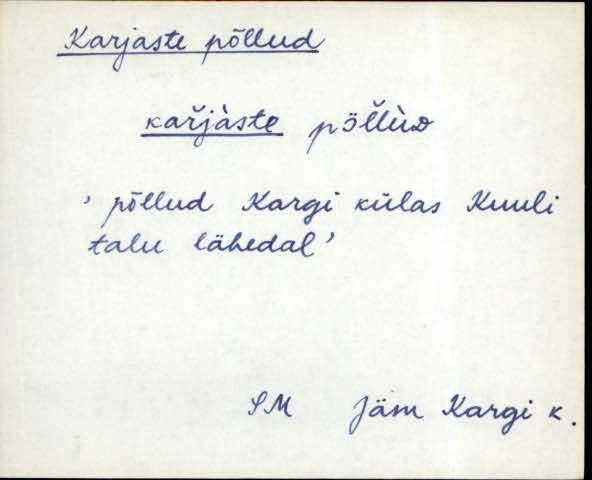 Karjaste põllud
kar̆jàste pöl̆lùᴅ
' põllud Kargi külas Kuuli
talu lähedal '
SM Jäm Kargi k.